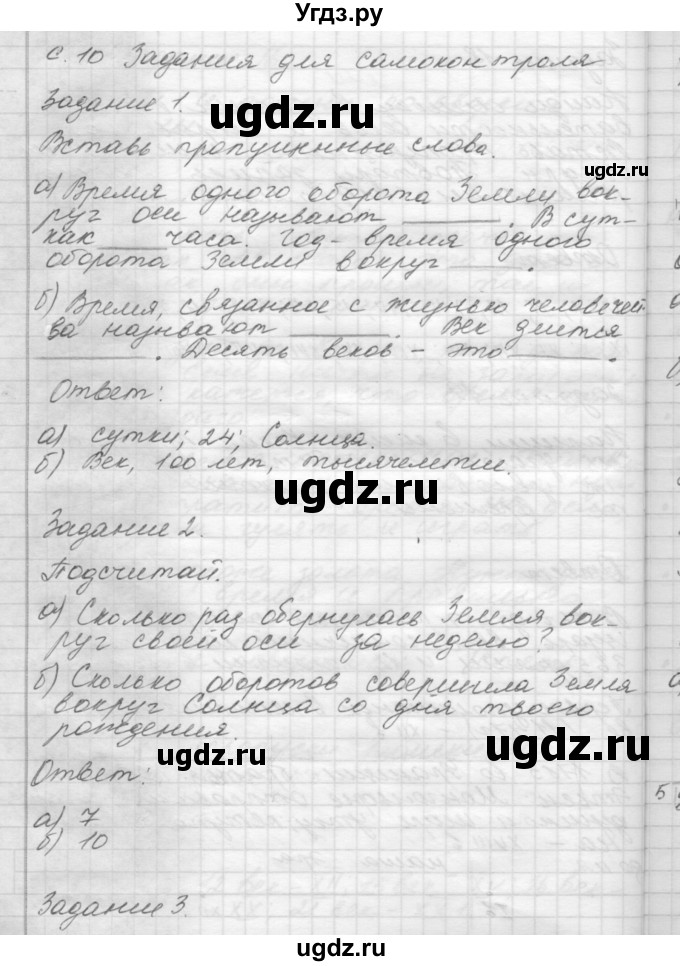 Угдз.ру
с. 10 Задания для самоконтроля
Задание 1.
ugdz.ru
Вставь пропущнные слова.
ugdz.ru
а) Время одного оборота Земли вок-
руг оси называют ______. В сут-
ках ____ часа. Год - время одного
оборота Земли вокруг ____.
б) Время, связанное с жизнью человечей
ва назывют ______. Век длится
______. Десять веков - это ______.
ugdz.ru
Ответ:
а) сутки; 24; Солнца.
б) Век, 100 лет, тысячелетие.
ugdz.ru
Задание 2.
Подсчитай.
а) Сколько раз обернулась Земля вок-
руг своей оси за неделю?
б) Сколько оборотов совершила Земля
вокруг Солнца со дня твоего
рождения.
ugdz.ru
ugdz.ru
Ответ:
а) 7
б) 10
Задание 3.
ugdz.ru